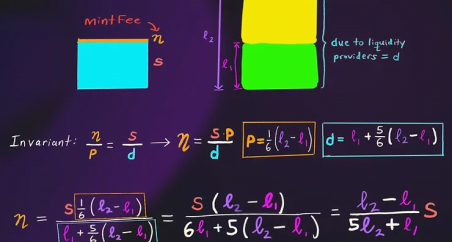 mintFee
η
s
ℓ₂
ℓ₁
due to liquidity
providers = d
Invariant: η/p = s/d → η = s·p/d p = 1/6(ℓ₂ - ℓ₁) d = ℓ₁ + 5/6(ℓ₂ - ℓ₁)
η = s 1/6(ℓ₂ - ℓ₁) / ℓ₁ + 5/6(ℓ₂ - ℓ₁) = s(ℓ₂ - ℓ₁) / 6ℓ₁ + 5(ℓ₂ - ℓ₁) = ℓ₂ - ℓ₁ / 5ℓ₂ + ℓ₁ s